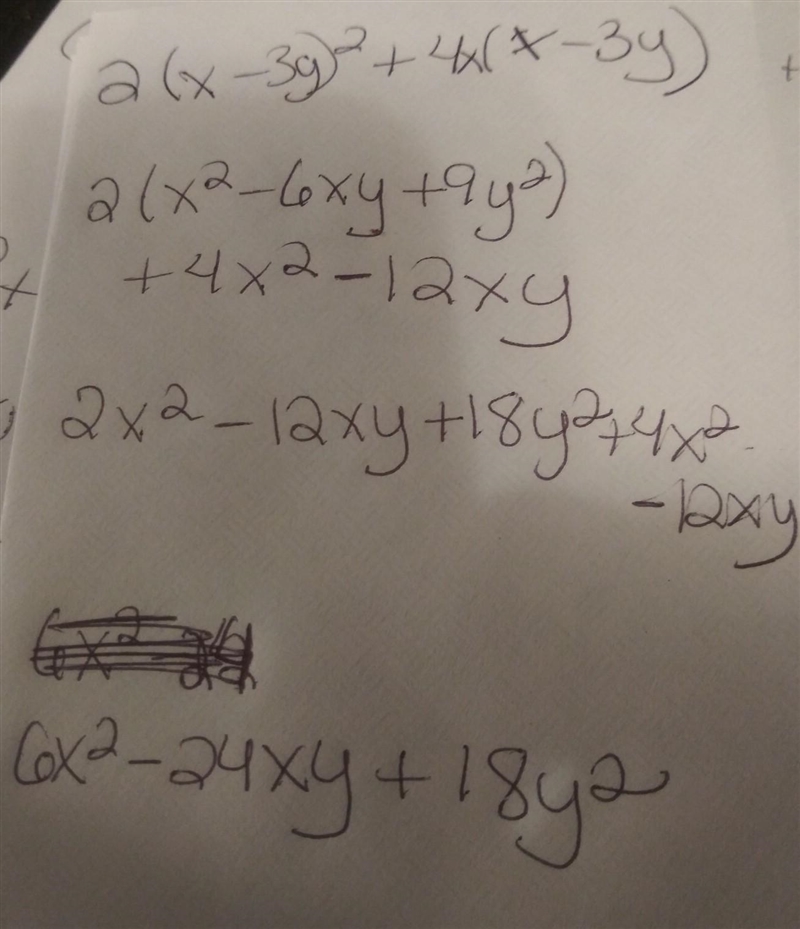 2(x-3y)² + 4x(x-3y)
2(x²-6xy+9y²)
+4x²-12xy
2x²-12xy+18y²+4x²
-12xy
6x²-24xy+18y²